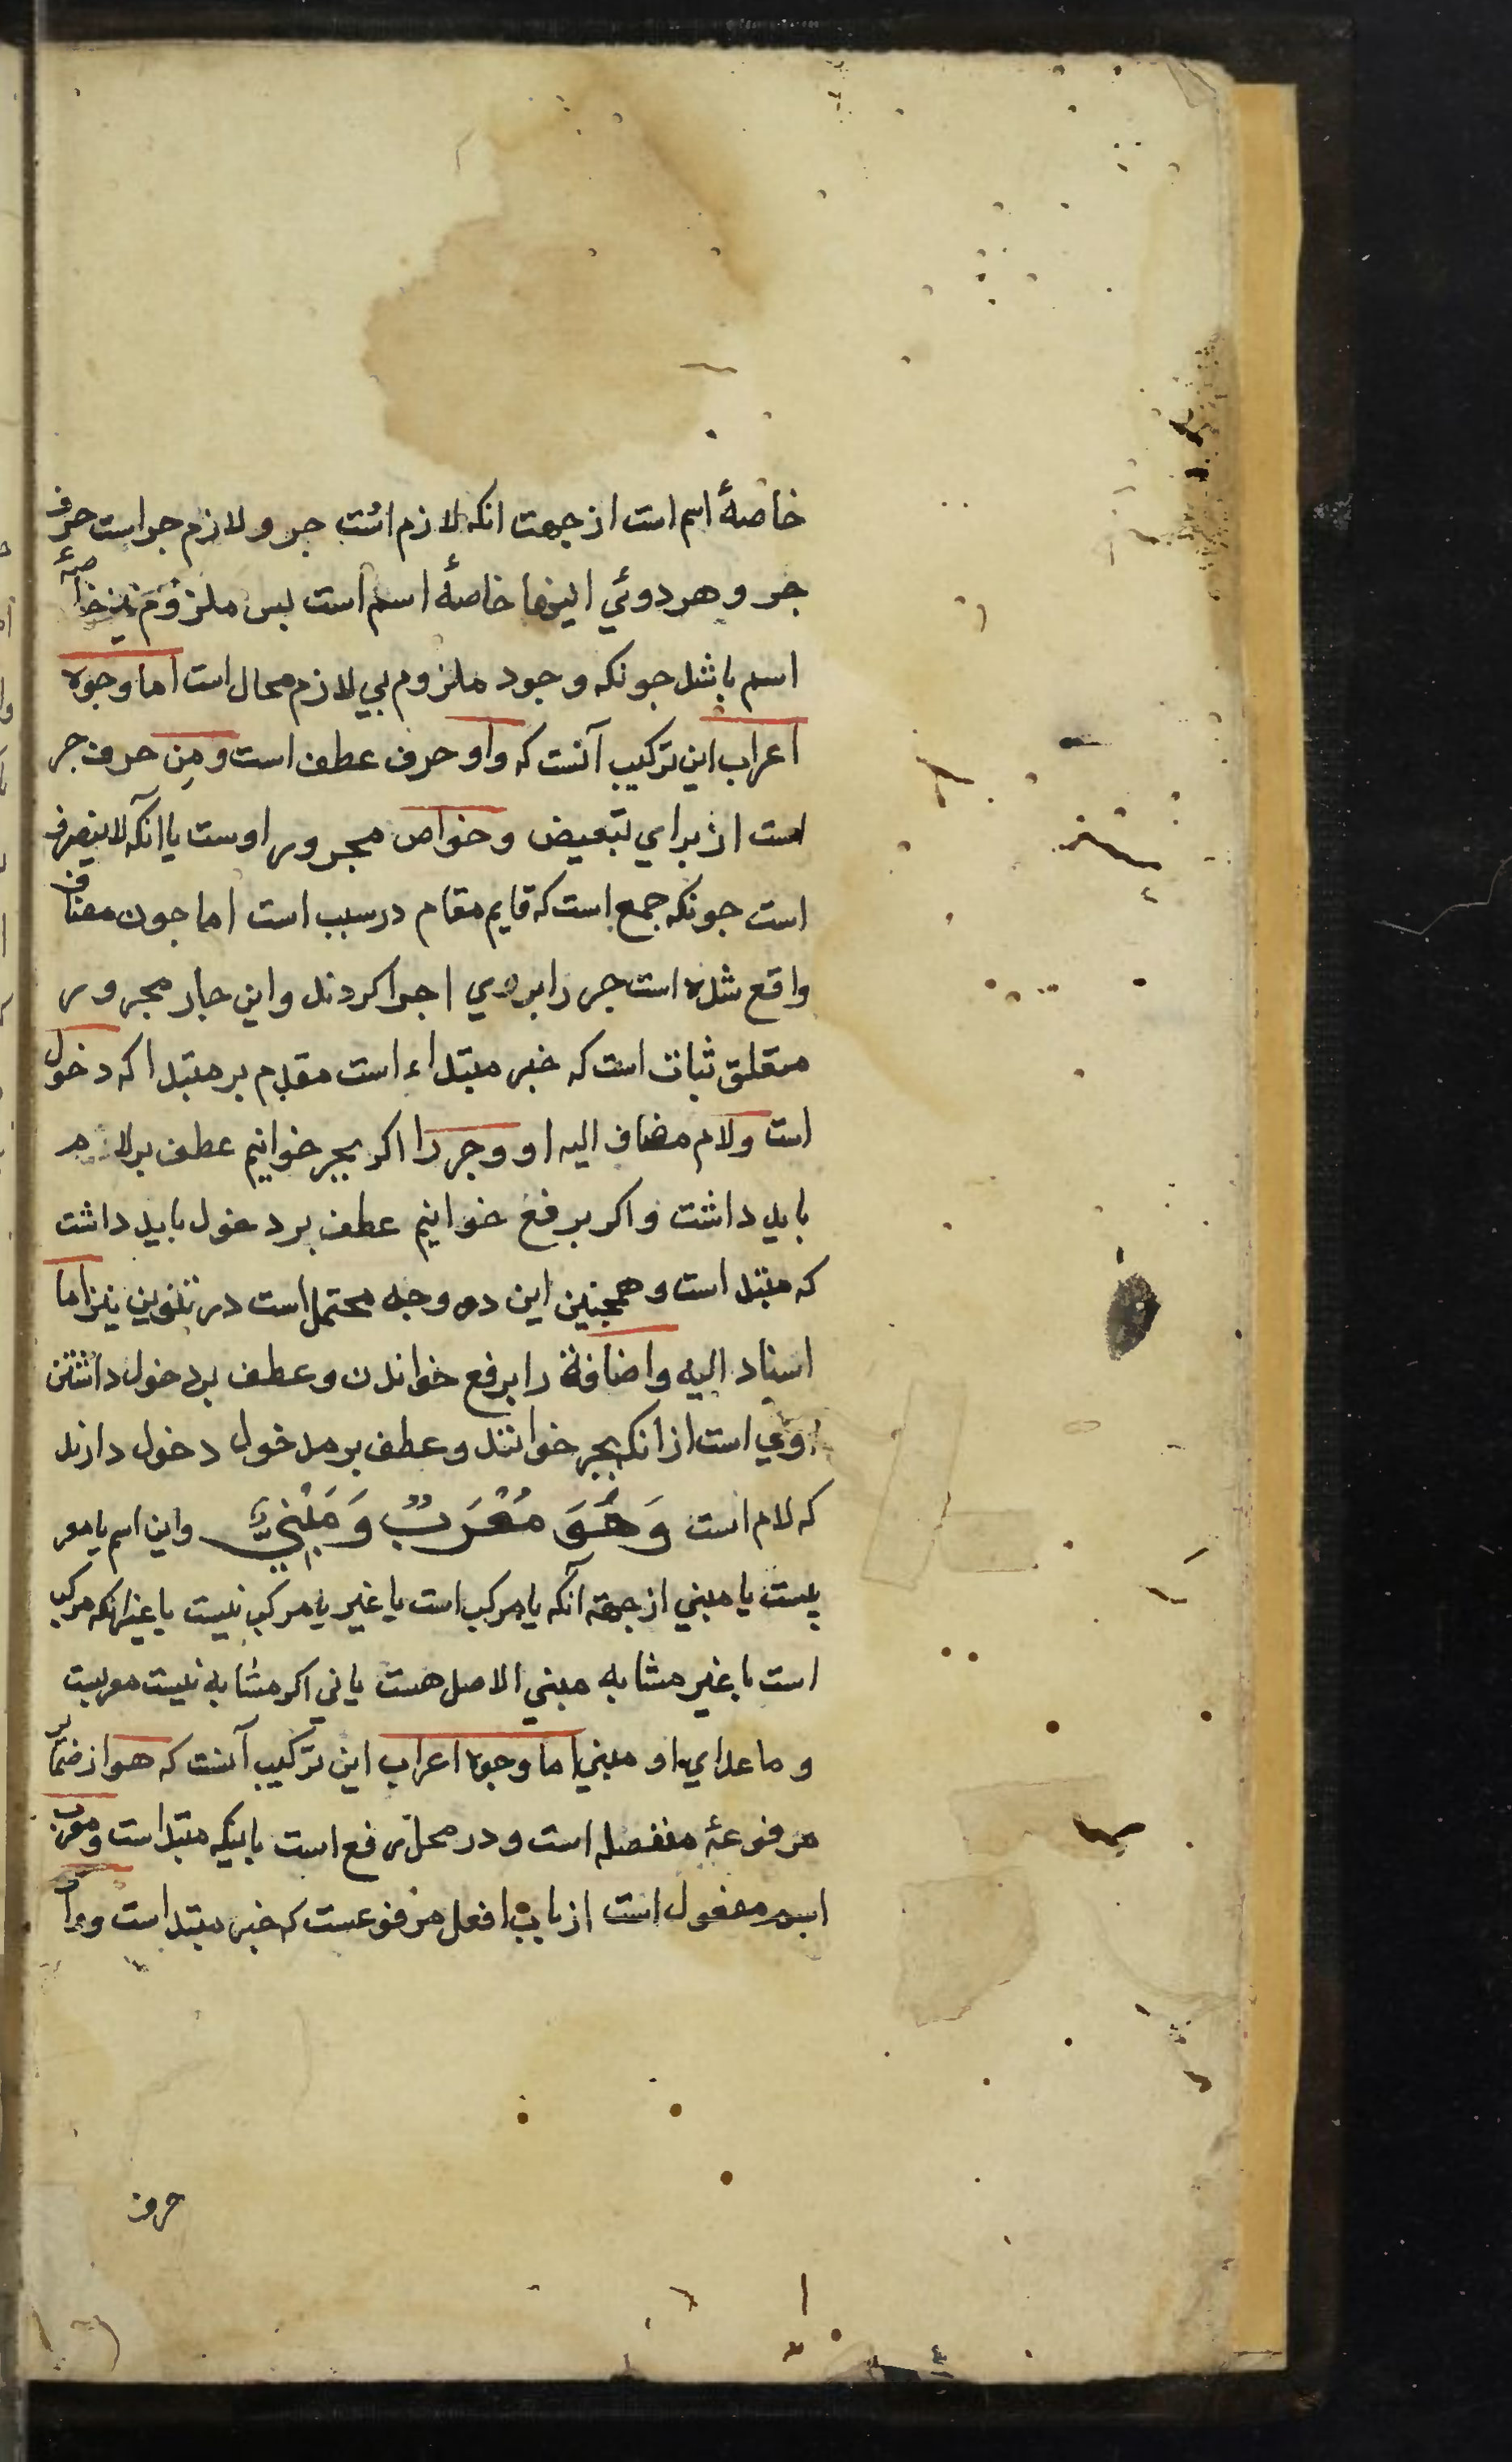 خاصهٔ اسم است از جهت انکه لازم است جر و لازم جر است حرف
جر و هر دوئي اینها خاصهٔ اسم است بس ملزوم نیز خاصهٔ
اسم باشد جونکه وجود ملزوم بي لازم محال است اما وجوه
اعراب این ترکیب آنست که واو حرف عطف است و مِن حرف جر
است از براي تبعیض و خواص مجرور اوست یا آنکه لا ینصرف
است جونکه جمع است که قایم مقام در سبب است اما جون مضاف
واقع شده است جر را بروي اجرا کردند و این جار مجرور
متعلق ثبات است که خبر مبتداء است مقدم بر مبتدا که دخول
است و لام مضاف الیه او و جر را اکر بجر خوانیم عطف بر لام
باید داشت و اکر برفع خوانیم عطف بر دخول باید داشت
که مبتد است و همجنین این دو وجه محتمل است در تنوین نیز اما
اسناد الیه و اضافة را برفع خواندن و عطف بر دخول داشتن
اوي است از انکه بجر خوانند و عطف بر مدخول دخول دارند
که لام است وَهُوَ مُعْرَبٌ وَمَبْنِيٌّ و این اسم یا معر
بست یا مبني از جهة آنکه یا مرکب است یا غیر یا مرکب نیست یا غیر انکه مرکب
است با غیر مشابه مبني الاصل هست یا ني اکر مشابه نیست معربست
و ما عداي او مبني اما وجوه اعراب این ترکیب آنست که هو از ضمایر
مرفوعهٔ منفصله است و در محل رفع است باینکه مبتداست و معرب
اسم مفعول است از باب افعل مرفوعست که خبر مبتداست و واو
حرف